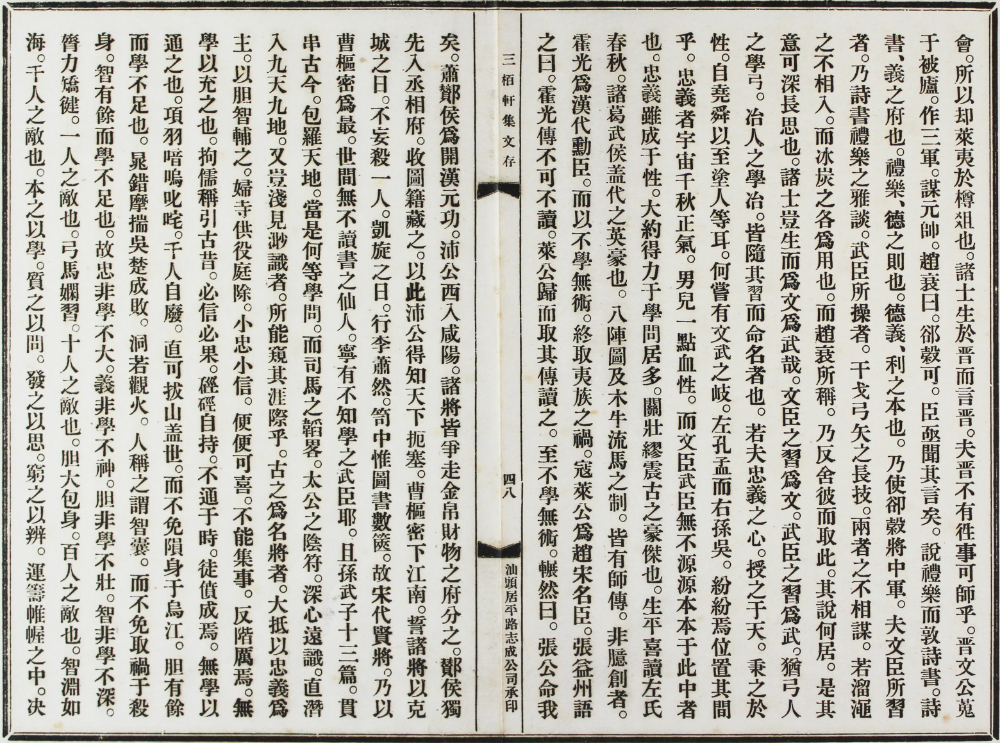 會。所以却萊夷於樽俎也。諸士生於晋而言晋。夫晋不有徃事可師乎。晋文公蒐
于被廬。作三軍。謀元帥。趙衰曰。郤縠可。臣亟聞其言矣。說禮樂而敦詩書。詩
書、義之府也。禮樂、德之則也。德義、利之本也。乃使郤縠將中軍。夫文臣所習
者。乃詩書禮樂之雅談。武臣所操者。干戈弓矢之長技。兩者之不相謀。若溜澠
之不相入。而冰炭之各爲用也。而趙衰所稱。乃反舍彼而取此。其說何居。是其
意可深長思也。諸士豈生而爲文爲武哉。文臣之習爲文。武臣之習爲武。猶弓人
之學弓。冶人之學冶。皆隨其習而命名者也。若夫忠義之心。授之于天。秉之於
性。自堯舜以至塗人等耳。何嘗有文武之岐。左孔孟而右孫吳。紛紛焉位置其間
乎。忠義者宇宙千秋正氣。男兒一點血性。而文臣武臣無不源源本本于此中者
也。忠義雖成于性。大約得力于學問居多。關壯繆震古之豪傑也。生平喜讀左氏
春秋。諸葛武侯盖代之英豪也。八陣圖及木牛流馬之制。皆有師傳。非臆創者。
霍光爲漢代勳臣。而以不學無術。終取夷族之禍。寇萊公爲趙宋名臣。張益州語
之曰。霍光傳不可不讀。萊公歸而取其傳讀之。至不學無術。囅然曰。張公命我
三栢軒集文存
四八
汕頭居平路志成公司承印
矣。蕭酇侯爲開漢元功。沛公西入咸陽。諸將皆爭走金帛財物之府分之。酇侯獨
先入丞相府。收圖籍藏之。以此沛公得知天下扼塞。曹樞密下江南。誓諸將以克
城之日。不妄殺一人。凱旋之日。行李蕭然。笥中惟圖書數篋。故宋代賢將。乃以
曹樞密爲最。世間無不讀書之仙人。寧有不知學之武臣耶。且孫武子十三篇。貫
串古今。包羅天地。當是何等學問。而司馬之韜畧。太公之陰符。深心遠識。直潛
入九天九地。又豈淺見渺識者。所能窺其涯際乎。古之爲名將者。大抵以忠義爲
主。以胆智輔之。婦寺供役庭除。小忠小信。便便可喜。不能集事。反階厲焉。無
學以充之也。拘儒稱引古昔。必信必果。硜硜自持。不通于時。徒僨成焉。無學以
通之也。項羽喑嗚叱咤。千人自廢。直可拔山盖世。而不免隕身于烏江。胆有餘
而學不足也。鼂錯摩揣吳楚成敗。洞若觀火。人稱之謂智囊。而不免取禍于殺
身。智有餘而學不足也。故忠非學不大。義非學不神。胆非學不壯。智非學不深。
膂力矯健。一人之敵也。弓馬嫻習。十人之敵也。胆大包身。百人之敵也。智淵如
海。千人之敵也。本之以學。質之以問。發之以思。窮之以辨。運籌帷幄之中。决